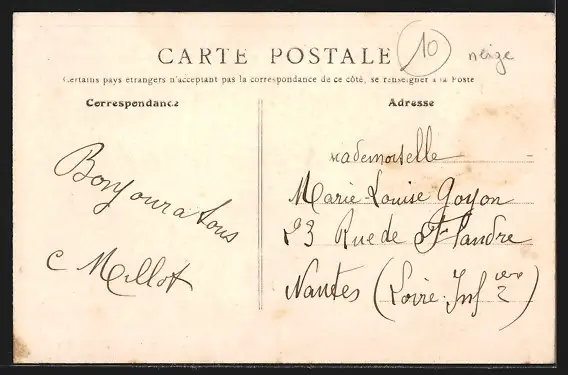 CARTE POSTALE
10
neige
Certains pays étrangers n'acceptant pas la correspondance de ce côté, se renseigner à la Poste
Correspondance
Adresse
Bonjour a tous
C Millot
Mademoiselle
Marie-Louise Goyon
23 Rue de Flandre
Nantes (Loire Inf ière 2)